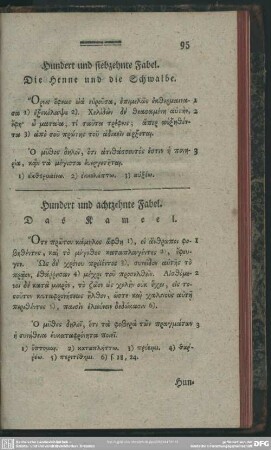 95
Hundert und siebzehnte Fabel.
Die Henne und die Schwalbe.
Ὄρνις ὄφεως ὠὰ εὑροῦσα, ἐπιμελῶς ἐκθερμαίνου- 1
σα 1) ἐξεκόλαψε 2). Χελιδὼν δὲ θεασαμένη αὐτὴν, 2
ὦ ματαία, τί ταῦτα τρέφεις; ἅπερ αὐξηθέντα
3) ἀπὸ σοῦ πρώτης τοῦ ἀδικεῖν ἄρξεται.
Ὁ μῦθος δηλοῖ, ὅτι ἀτιθάσσευτός ἐστιν ἡ πονη-
ρία, κᾂν τὰ μέγιστα εὐεργετῆται.
1) ἐκθερμαίνω. 2) ἐκκολάπτω. 3) αὐξέω.
Hundert und achtzehnte Fabel.
Das Kameel.
Ὅτε πρῶτον κάμηλος ὤφθη 1), οἱ ἄνθρωποι φο- 1
βηθέντες, καὶ τὸ μέγεθος καταπλαγέντες 2), ἔφευ-
γον. Ὡς δὲ χρόνου προϊόντος 3) συνεῖδον αὐτῆς τὸ
πρᾶον, ἐθάῤῥησαν 4) μέχρι τοῦ προσελθεῖν. Αἰσθόμε- 2
νοι δὲ κατὰ μικρὸν, τὸ ζῶον ὡς χολὴν οὐκ ἔχει, εἰς το-
σοῦτον καταφρονήσεως ἦλθον, ὥστε καὶ χαλινοὺς αὐτῇ
περιθέντες 5), παισὶν ἐλαύνειν δεδώκασιν 6).
Ὁ μῦθος δηλοῖ, ὅτι τὰ φοβερὰ τῶν πραγμάτων 3
ἡ συνήθεια εὐκαταφρόνητα ποιεῖ.
1) ὄπτομαι. 2) καταπλήττω. 3) πρόειμι. 4) θαῤ-
ῥέω. 5) περιτίθημι. 6) f 18, 24.
Hun-